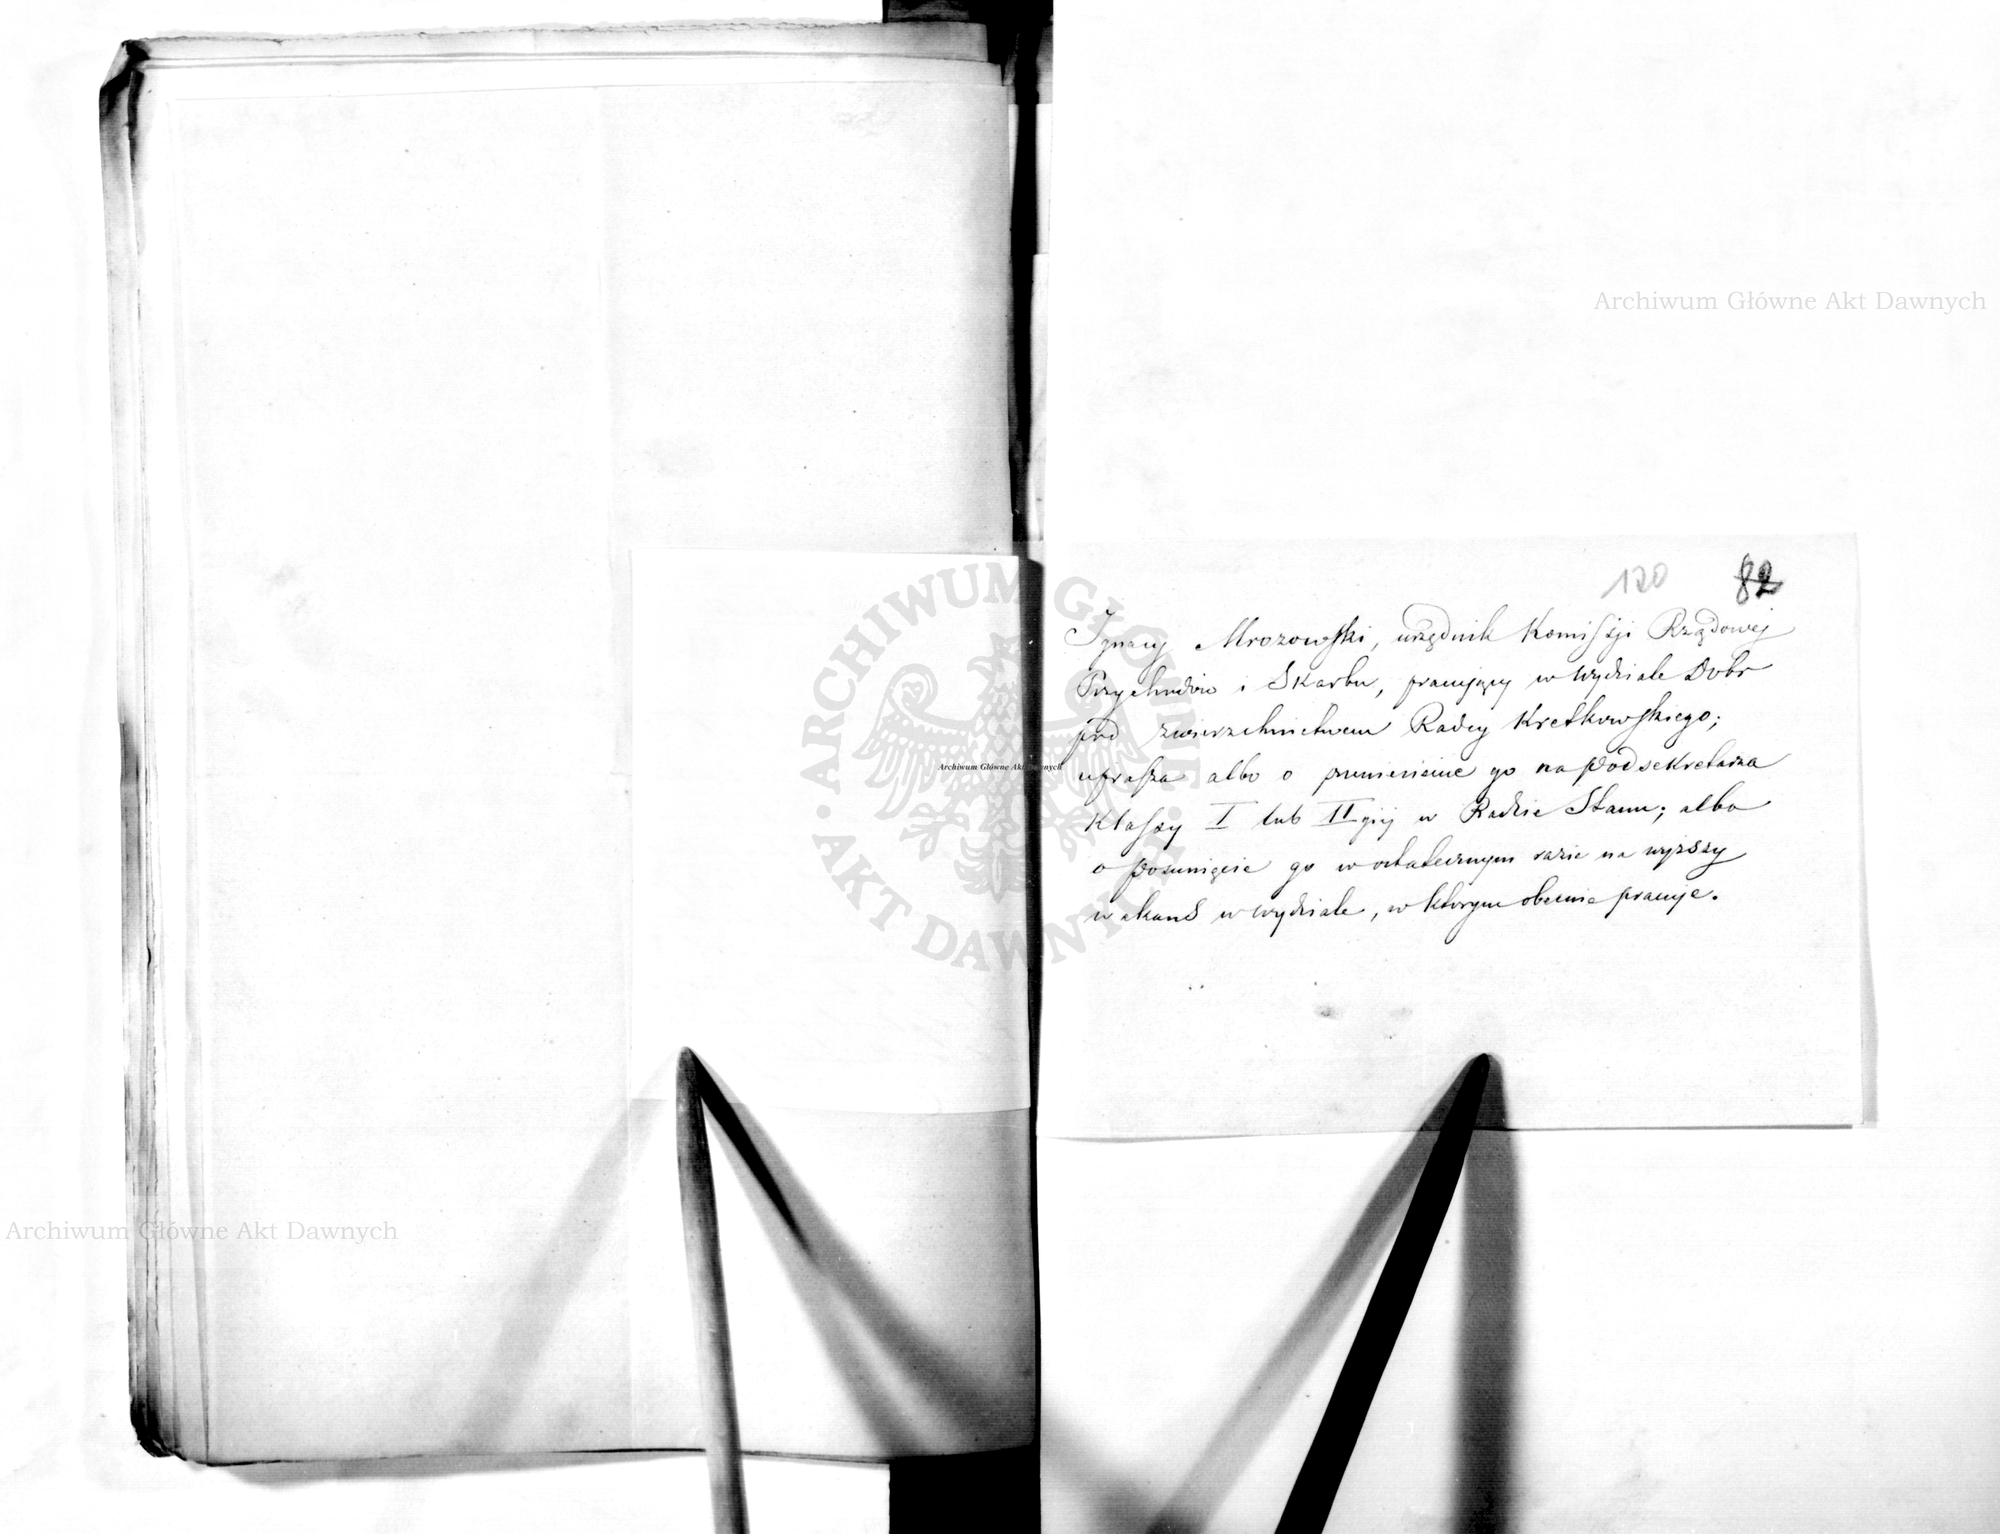 120 82
Ignacy Mrozowski, urzędnik Komissji Rządowej
Przychodów i Skarbu, pracujący w Wydziale Dobr
pod zwierzchnictwem Radcy Kretkowskiego;
uprasza albo o przeniesienie go na Podsekretarza
Klassy I lub IIgiej w Radzie Stanu; albo
o posunięcie go w ostatecznym razie na wyższy
wakans w wydziale, w którym obecnie pracuje.
Archiwum Główne Akt Dawnych
ARCHIWUM GŁÓWNE · AKT DAWNYCH ·
Archiwum Główne Akt Dawnych
Archiwum Główne Akt Dawnych